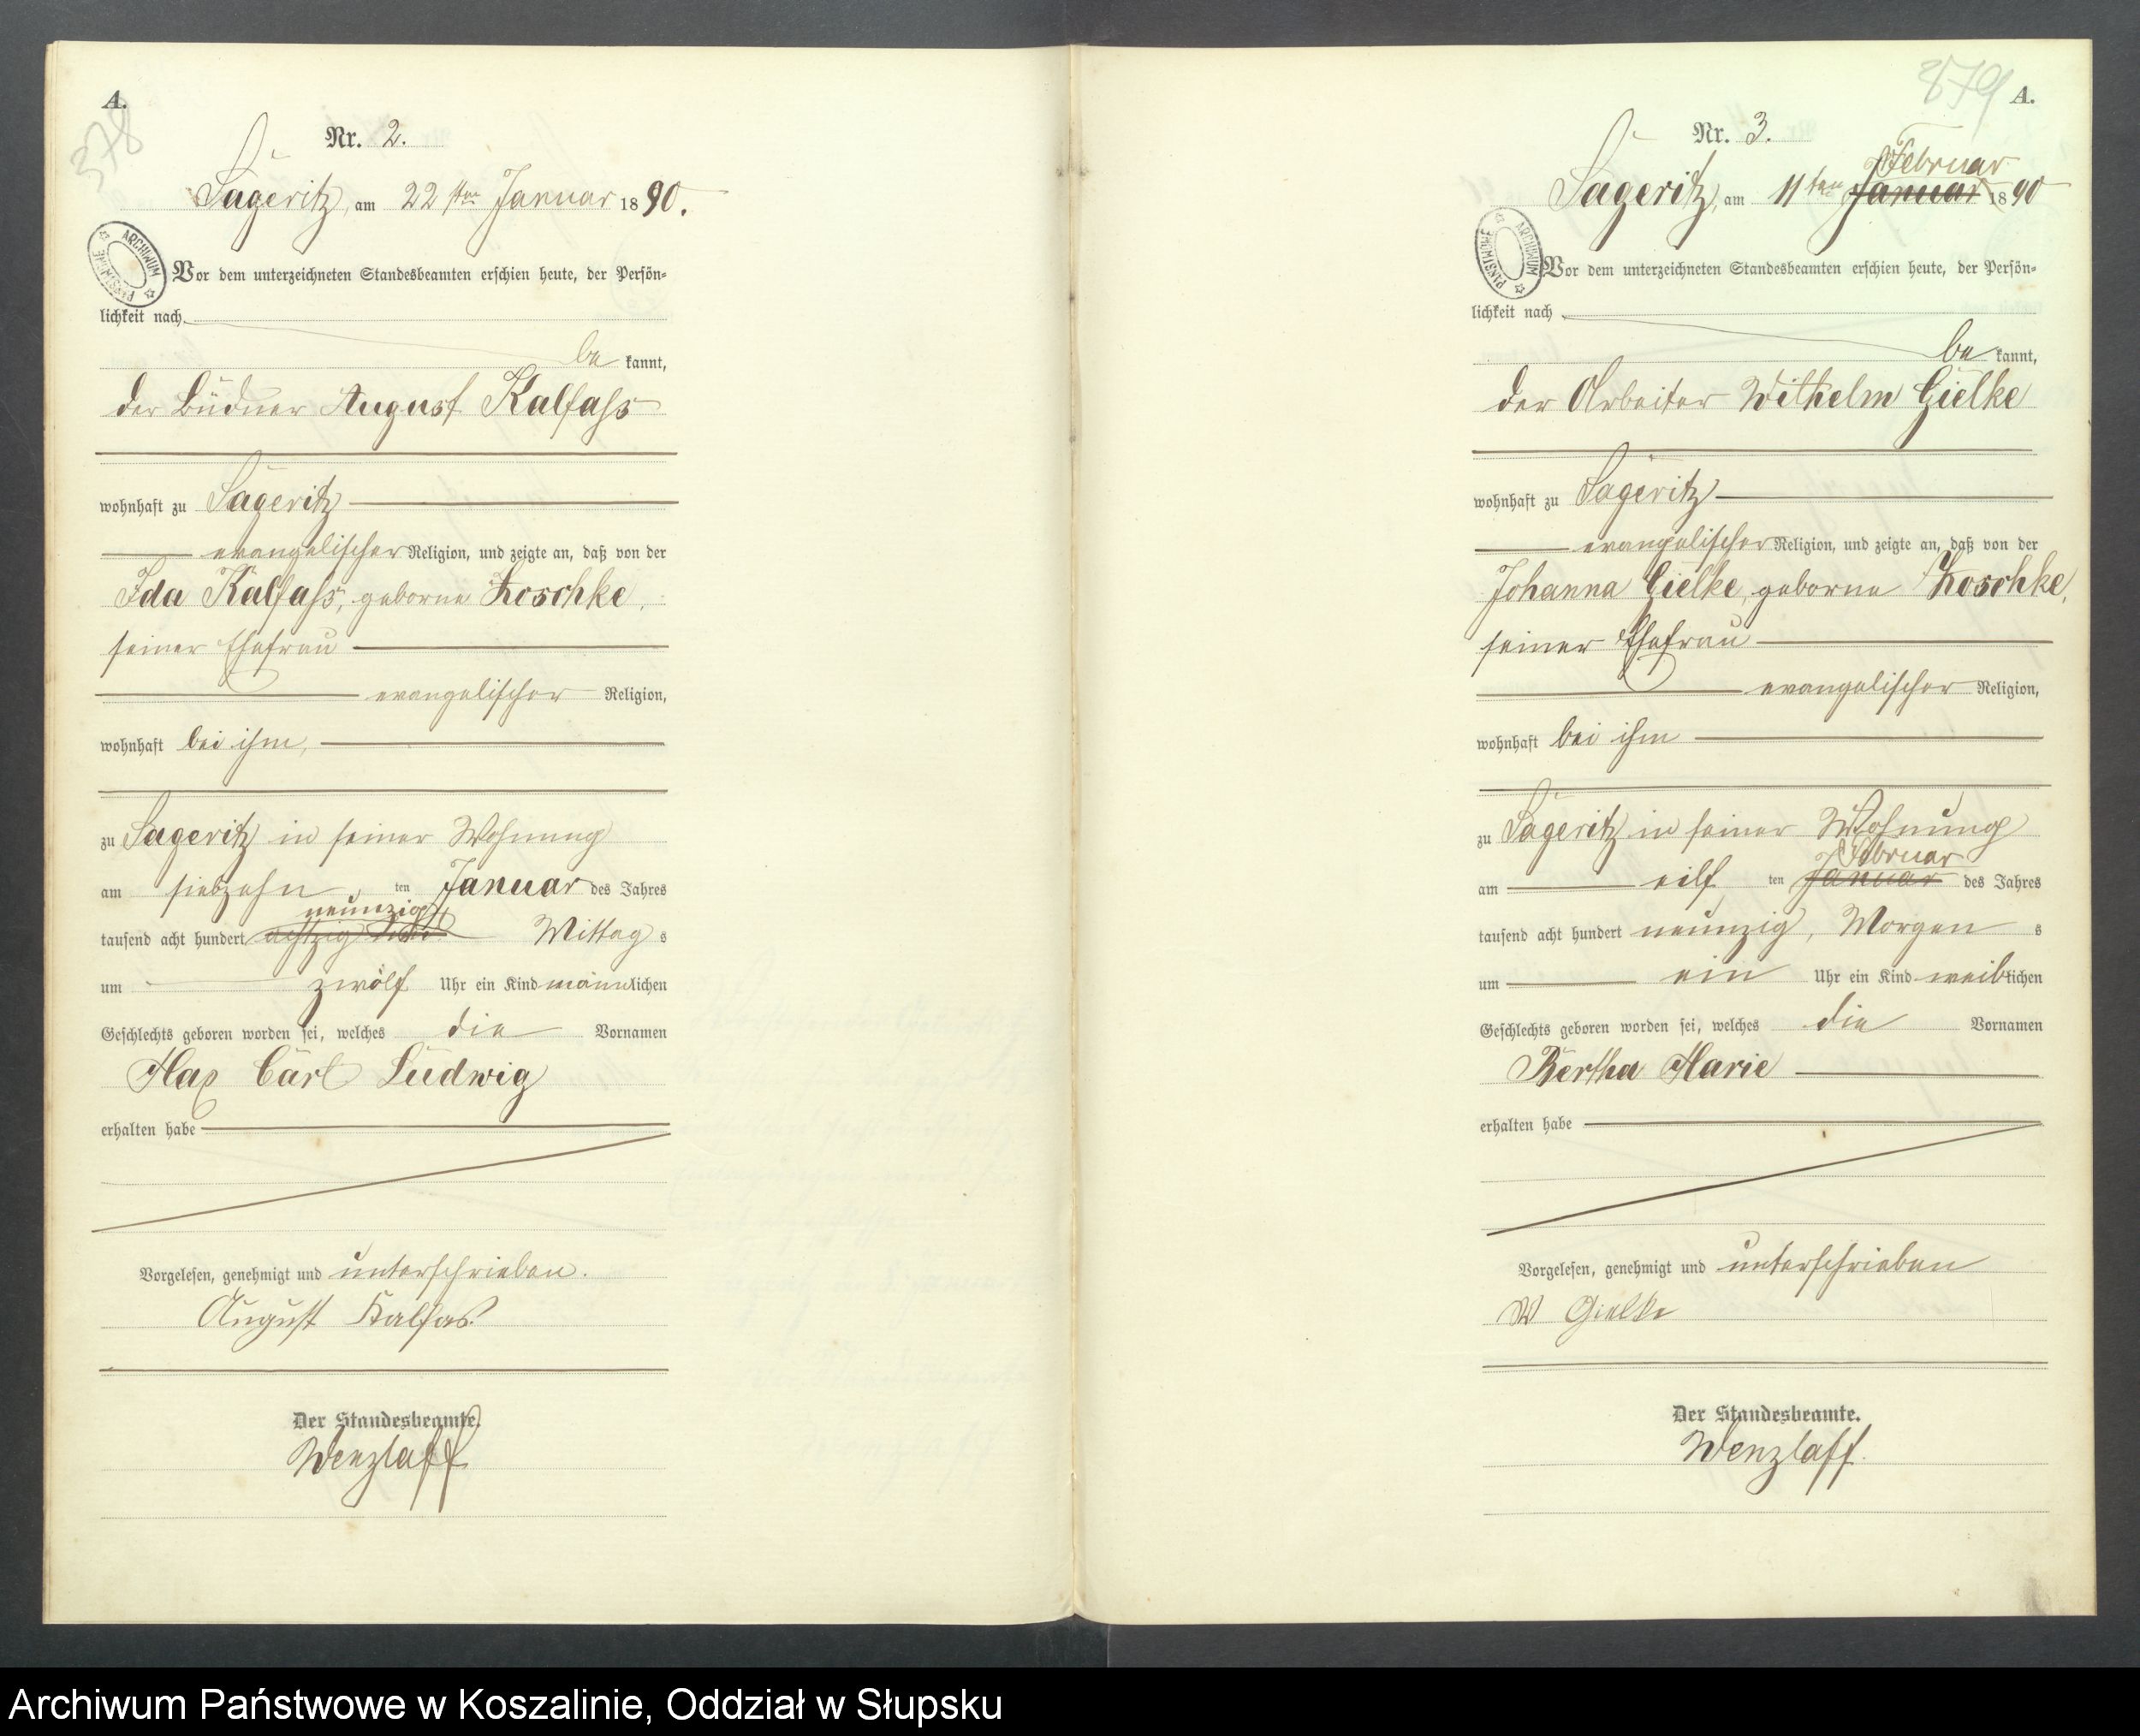 A.
378
Nr. 2.
Sageritz, am 22sten Januar 1890.
ARCHIWUM PAŃSTWOWE
Vor dem unterzeichneten Standesbeamten erschien heute, der Persön-
lichkeit nach
be kannt,
der Büdner August Kalfass
wohnhaft zu Sageritz
evangelischer Religion, und zeigte an, daß von der
Ida Kalfass, geborne Koschke,
seiner Ehefrau
evangelischer Religion,
wohnhaft bei ihm,
zu Sageritz in seiner Wohnung
am siebzehn ten Januar des Jahres
neunzig
tausend acht hundert achtzig Mittag s
um zwölf Uhr ein Kind männlichen
Geschlechts geboren worden sei, welches die Vornamen
Max Carl Ludwig
erhalten habe
Vorgelesen, genehmigt und unterschrieben.
August Kalfas
Der Standesbeamte.
Wenzlaff
879 A.
Nr. 3.
Februar
Sageritz, am 11ten Januar 1890
ARCHIWUM PAŃSTWOWE
Vor dem unterzeichneten Standesbeamten erschien heute, der Persön-
lichkeit nach
be kannt,
der Arbeiter Wilhelm Gielke
wohnhaft zu Sageritz
evangelischer Religion, und zeigte an, daß von der
Johanna Gielke, geborne Koschke,
seiner Ehefrau
evangelischer Religion,
wohnhaft bei ihm
zu Sageritz in seiner Wohnung
Februar
am eilf ten Januar des Jahres
tausend acht hundert neunzig, Morgen s
um ein Uhr ein Kind weiblichen
Geschlechts geboren worden sei, welches die Vornamen
Bertha Marie
erhalten habe
Vorgelesen, genehmigt und unterschrieben
W Gielke
Der Standesbeamte.
Wenzlaff.
Archiwum Państwowe w Koszalinie, Oddział w Słupsku